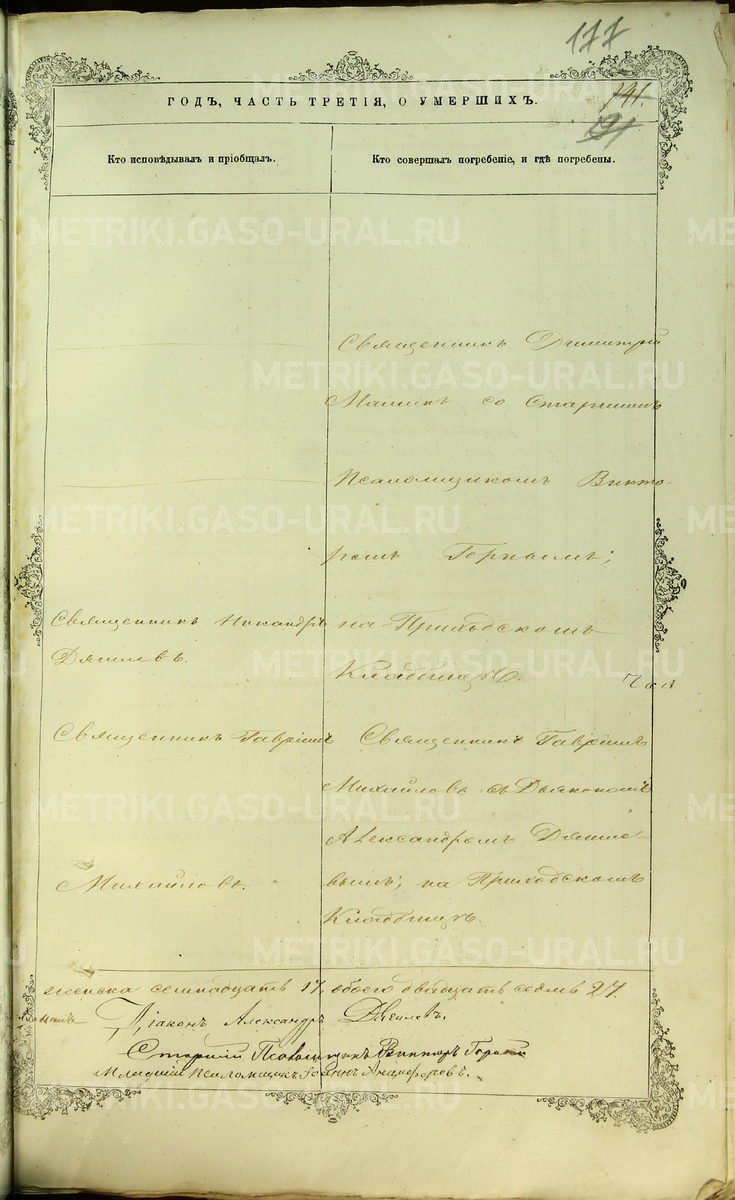 177
191.
191
ГОДЪ, ЧАСТЬ ТРЕТІЯ, О УМЕРШИХЪ.
Кто исповѣдывалъ и пріобщалъ.
Кто совершалъ погребеніе, и гдѣ погребены.
Священникъ Димитрій
со Старшимъ
Псаломщикомъ Викто-
ромъ
Священникъ Никандръ
на Приходскомъ
Кладбищѣ.
Священникъ Гавріилъ
Священникъ Гавріилъ
Михайловъ съ Дьякономъ
Александромъ
Михайловъ.
на Приходскомъ
Кладбищѣ.
женска семнадцать 17, обоего двадцать седмь 27.
Діаконъ Александръ
Старшій Псаломщикъ Викторъ
Младшій Псаломщикъ Іоаннъ Анциферовъ.
METRIKI.GASO-URAL.RU